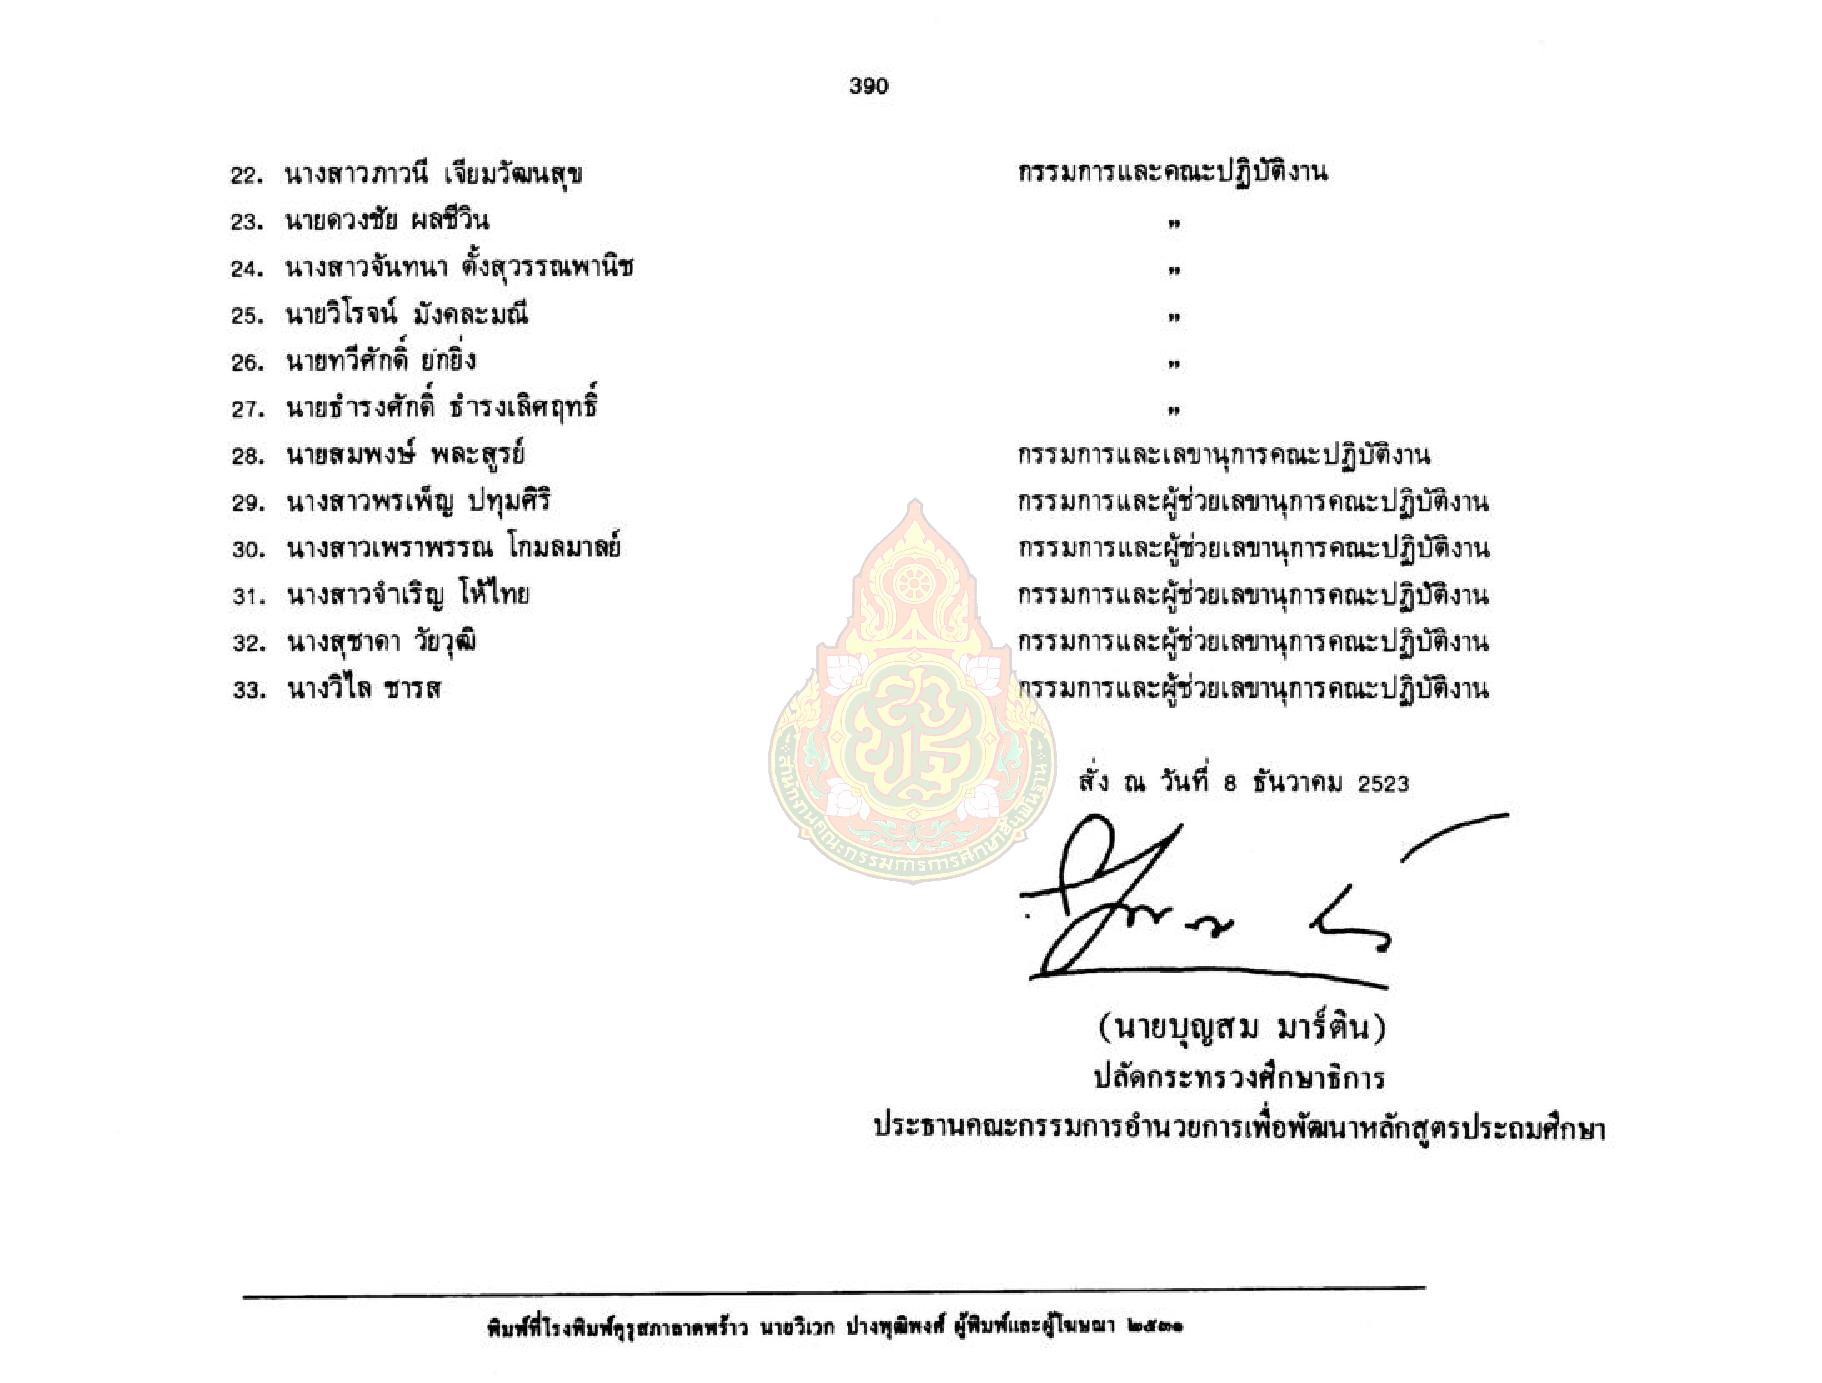 390
22. นางสาวภาวนี เจียมวัฒนสุข กรรมการและคณะปฏิบัติงาน
23. นายดวงชัย ผลชีวิน "
24. นางสาวจันทนา ตั้งสุวรรณพานิช "
25. นายวิโรจน์ มังคละมณี "
26. นายทวีศักดิ์ ยกยิ่ง "
27. นายธำรงศักดิ์ ธำรงเลิศฤทธิ์ "
28. นายสมพงษ์ พละสูรย์ กรรมการและเลขานุการคณะปฏิบัติงาน
29. นางสาวพรเพ็ญ ปทุมศิริ กรรมการและผู้ช่วยเลขานุการคณะปฏิบัติงาน
30. นางสาวเพราพรรณ โกมลมาลย์ กรรมการและผู้ช่วยเลขานุการคณะปฏิบัติงาน
31. นางสาวจำเริญ โห้ไทย กรรมการและผู้ช่วยเลขานุการคณะปฏิบัติงาน
32. นางสุชาดา วัยวุฒิ กรรมการและผู้ช่วยเลขานุการคณะปฏิบัติงาน
33. นางวิไล ชารส กรรมการและผู้ช่วยเลขานุการคณะปฏิบัติงาน
สพฐ
สำนักงานคณะกรรมการการศึกษาขั้นพื้นฐาน
สั่ง ณ วันที่ 8 ธันวาคม 2523
(นายบุญสม มาร์ติน)
ปลัดกระทรวงศึกษาธิการ
ประธานคณะกรรมการอำนวยการเพื่อพัฒนาหลักสูตรประถมศึกษา
พิมพ์ที่โรงพิมพ์คุรุสภาลาดพร้าว นายวิเวก ปางพุฒิพงศ์ ผู้พิมพ์และผู้โฆษณา ๒๕๓๑